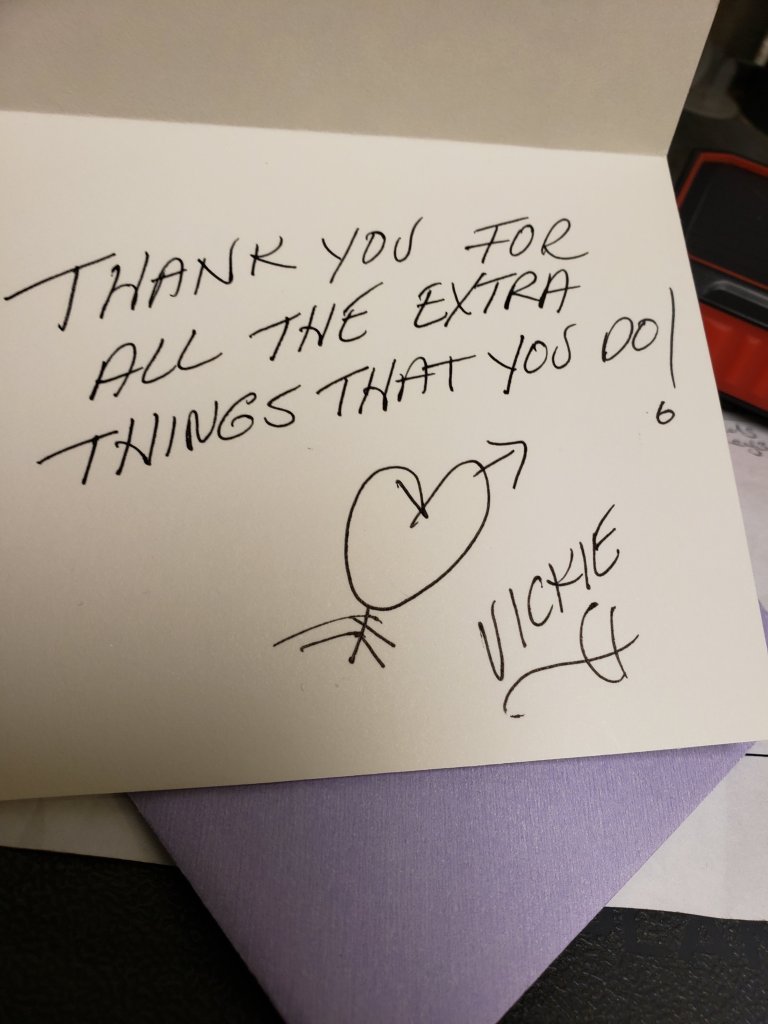 THANK YOU FOR
ALL THE EXTRA
THINGS THAT YOU DO!
VICKIE